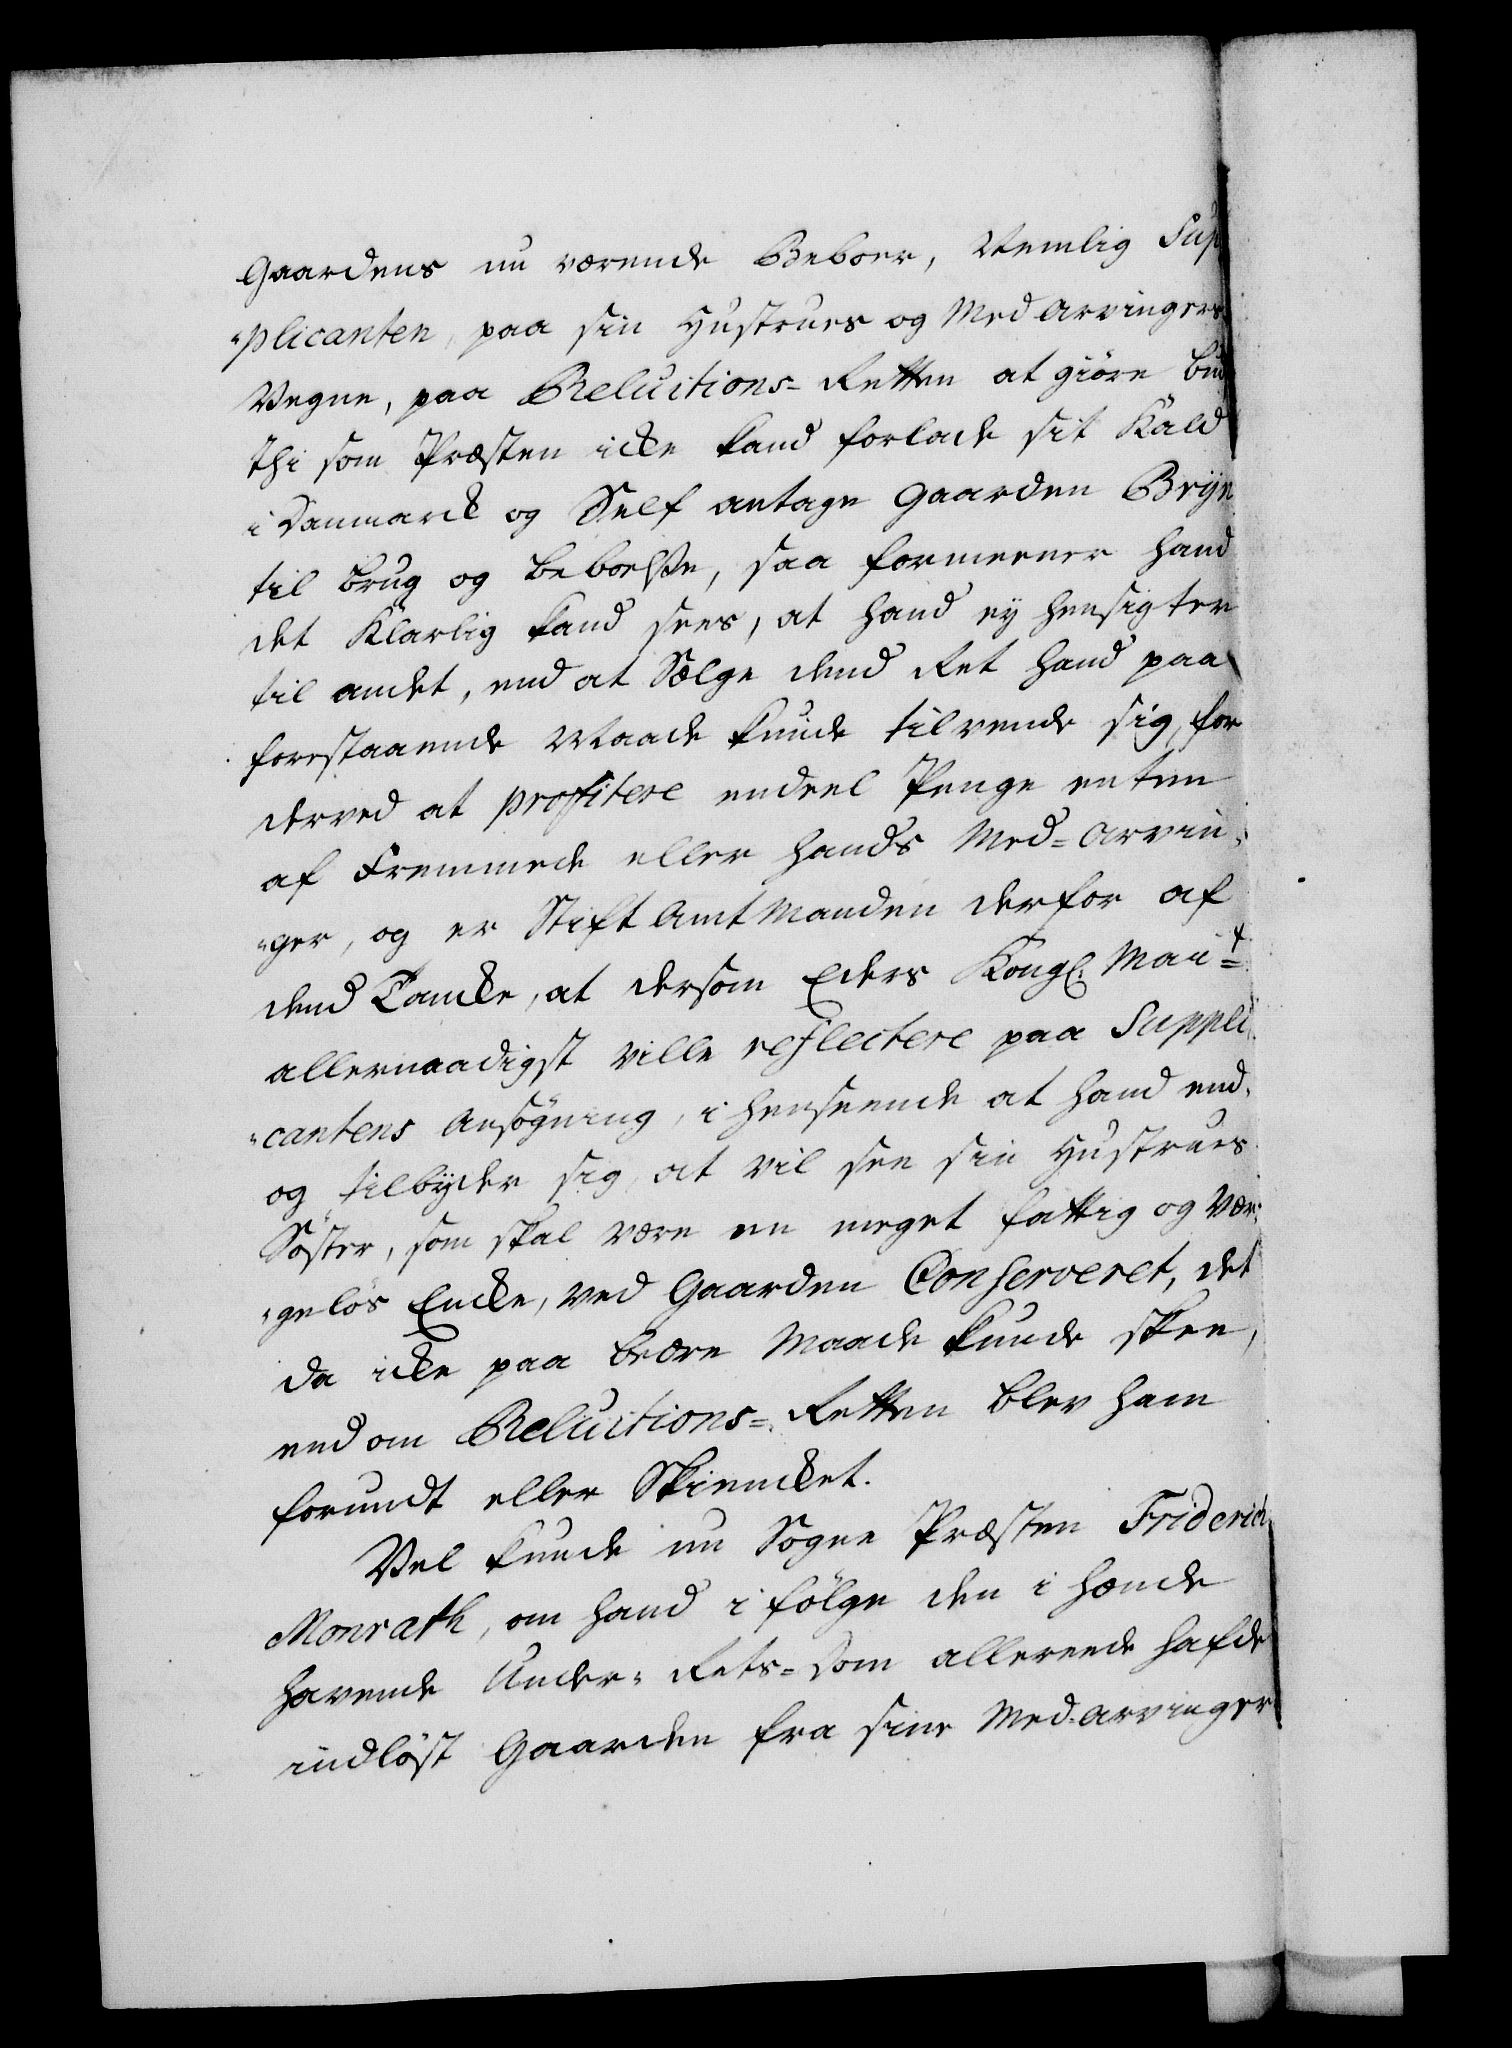 Gaardens nu værende Beboer, Nemlig Sup
"plicanten, paa sin Hustrues og Med Arvingers
Vegne, paa Reluitions= Retten at giöre
thi som Præsten icke kand forlade sit Kald
i Danmarck og Self antage Gaarden Bryn
til brug og beboelse, saa formeener hand
det Klarlig kand sees, at hand ey hensigter
til andet, end at Sælge dend Ret hand paa
forestaaende Maade kunde tilvende sig, for
derved at profitere endeel Penge enten
af Fremmede eller hands Med=Arvin,
"ger, og er Stift Amt Manden derfor af
dend Tancke, at dersom Eders Kongl. Mai^t
allernaadigst ville reflectere paa Suppli,
"cantens Ansögning, i henseende at hand end,
og tilbyder sig, at vil see sin Hustrues
Söster, som skal være en meget fattig og Vær,
"gelös Encke, ved Gaarden Conserveret, det
da icke paa bedre Maade kunde skee,
end om Reluitions= Retten blev ham
forundt eller Skiencket.
Vel kunde nu Sogne Præsten Friderich
Monrath, om hand i fölge den i hænde
havende Under, Rets= Dom allereede hafde
indlöst Gaarden fra sine Med-Arvinger